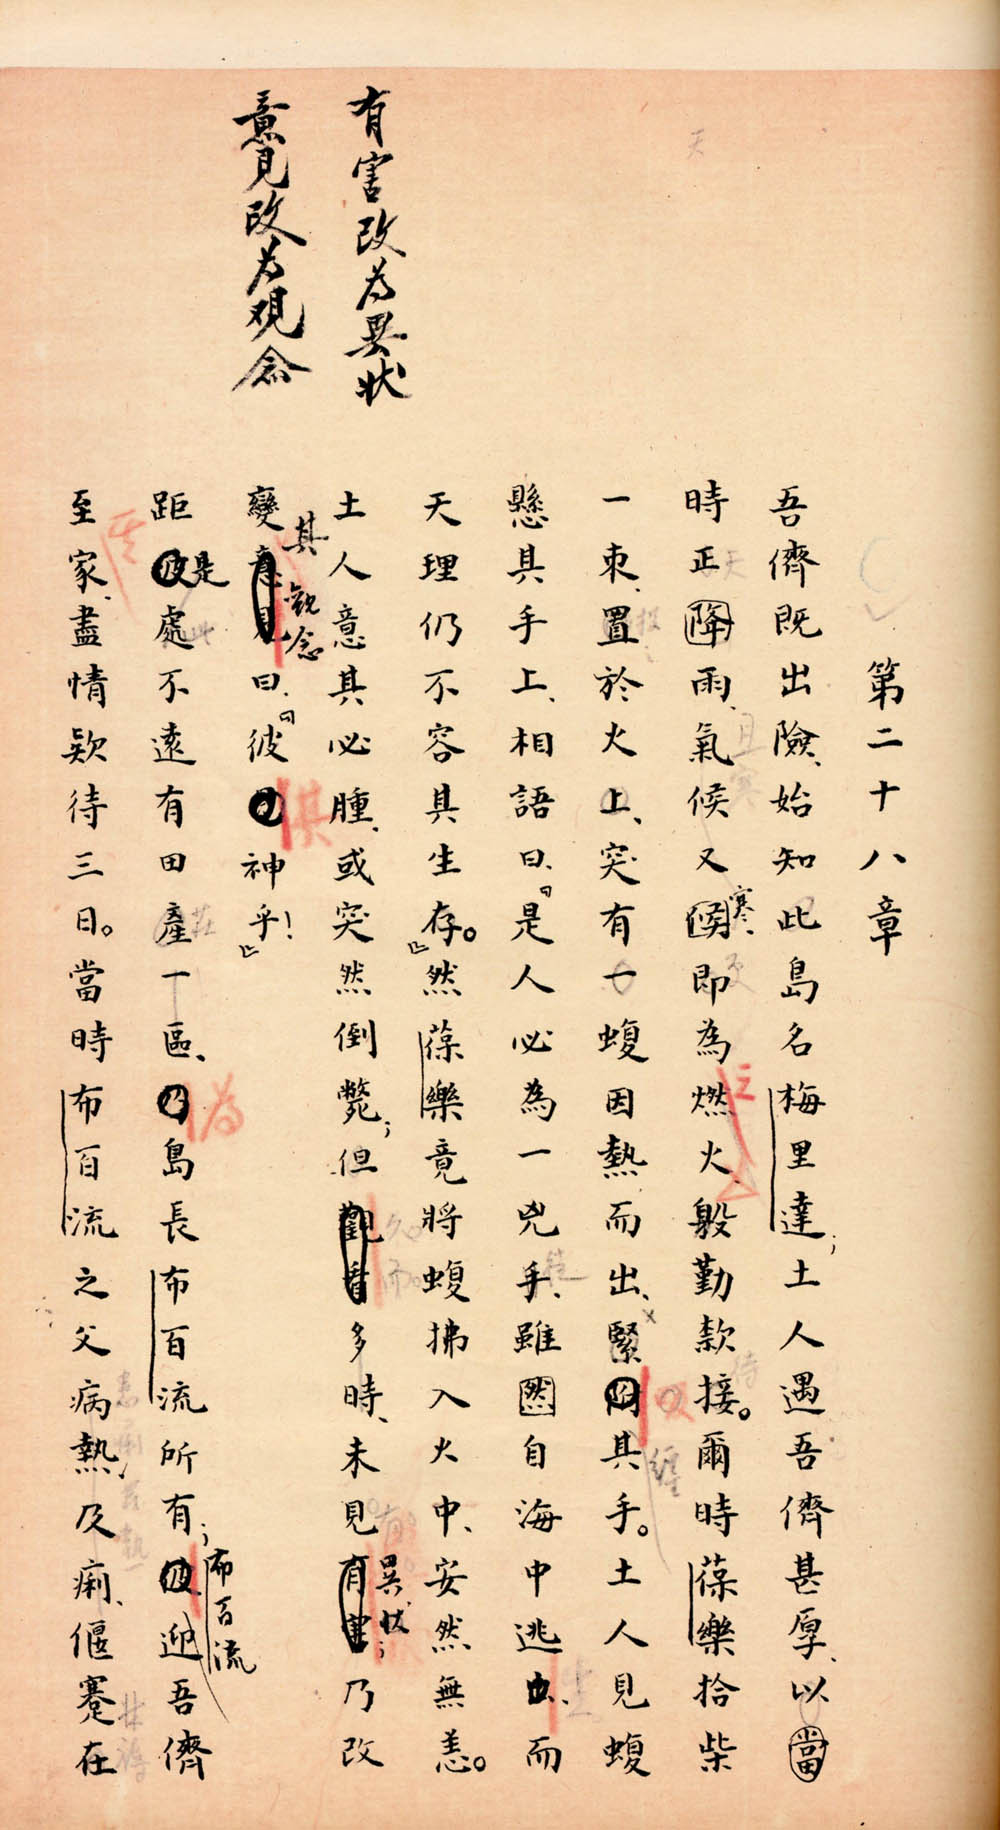 有害改為異狀
意見改為观念
第二十八章
吾儕既出險、始知此島名梅里達；土人遇吾儕甚厚、以當
時正降雨、氣候又寒、即為燃火、殷勤款接。爾時葆樂拾柴
一束、置於火上、突有一蝮因熱而出、緊附其手。土人見蝮
懸其手上、相語曰、「是人必為一兇手、雖然自海中逃出、而
天理仍不容其生存。」然葆樂竟將蝮拂入火中、安然無恙。
土人意其必腫、或突然倒斃；但觀看多時、未見異狀；乃改
變其觀念曰、「彼其神乎！」
距是處不遠有田產一區、乃島長布百流所有；布百流迎吾儕
至家、盡情欵待三日。當時布百流之父病熱、及痢、偃蹇在